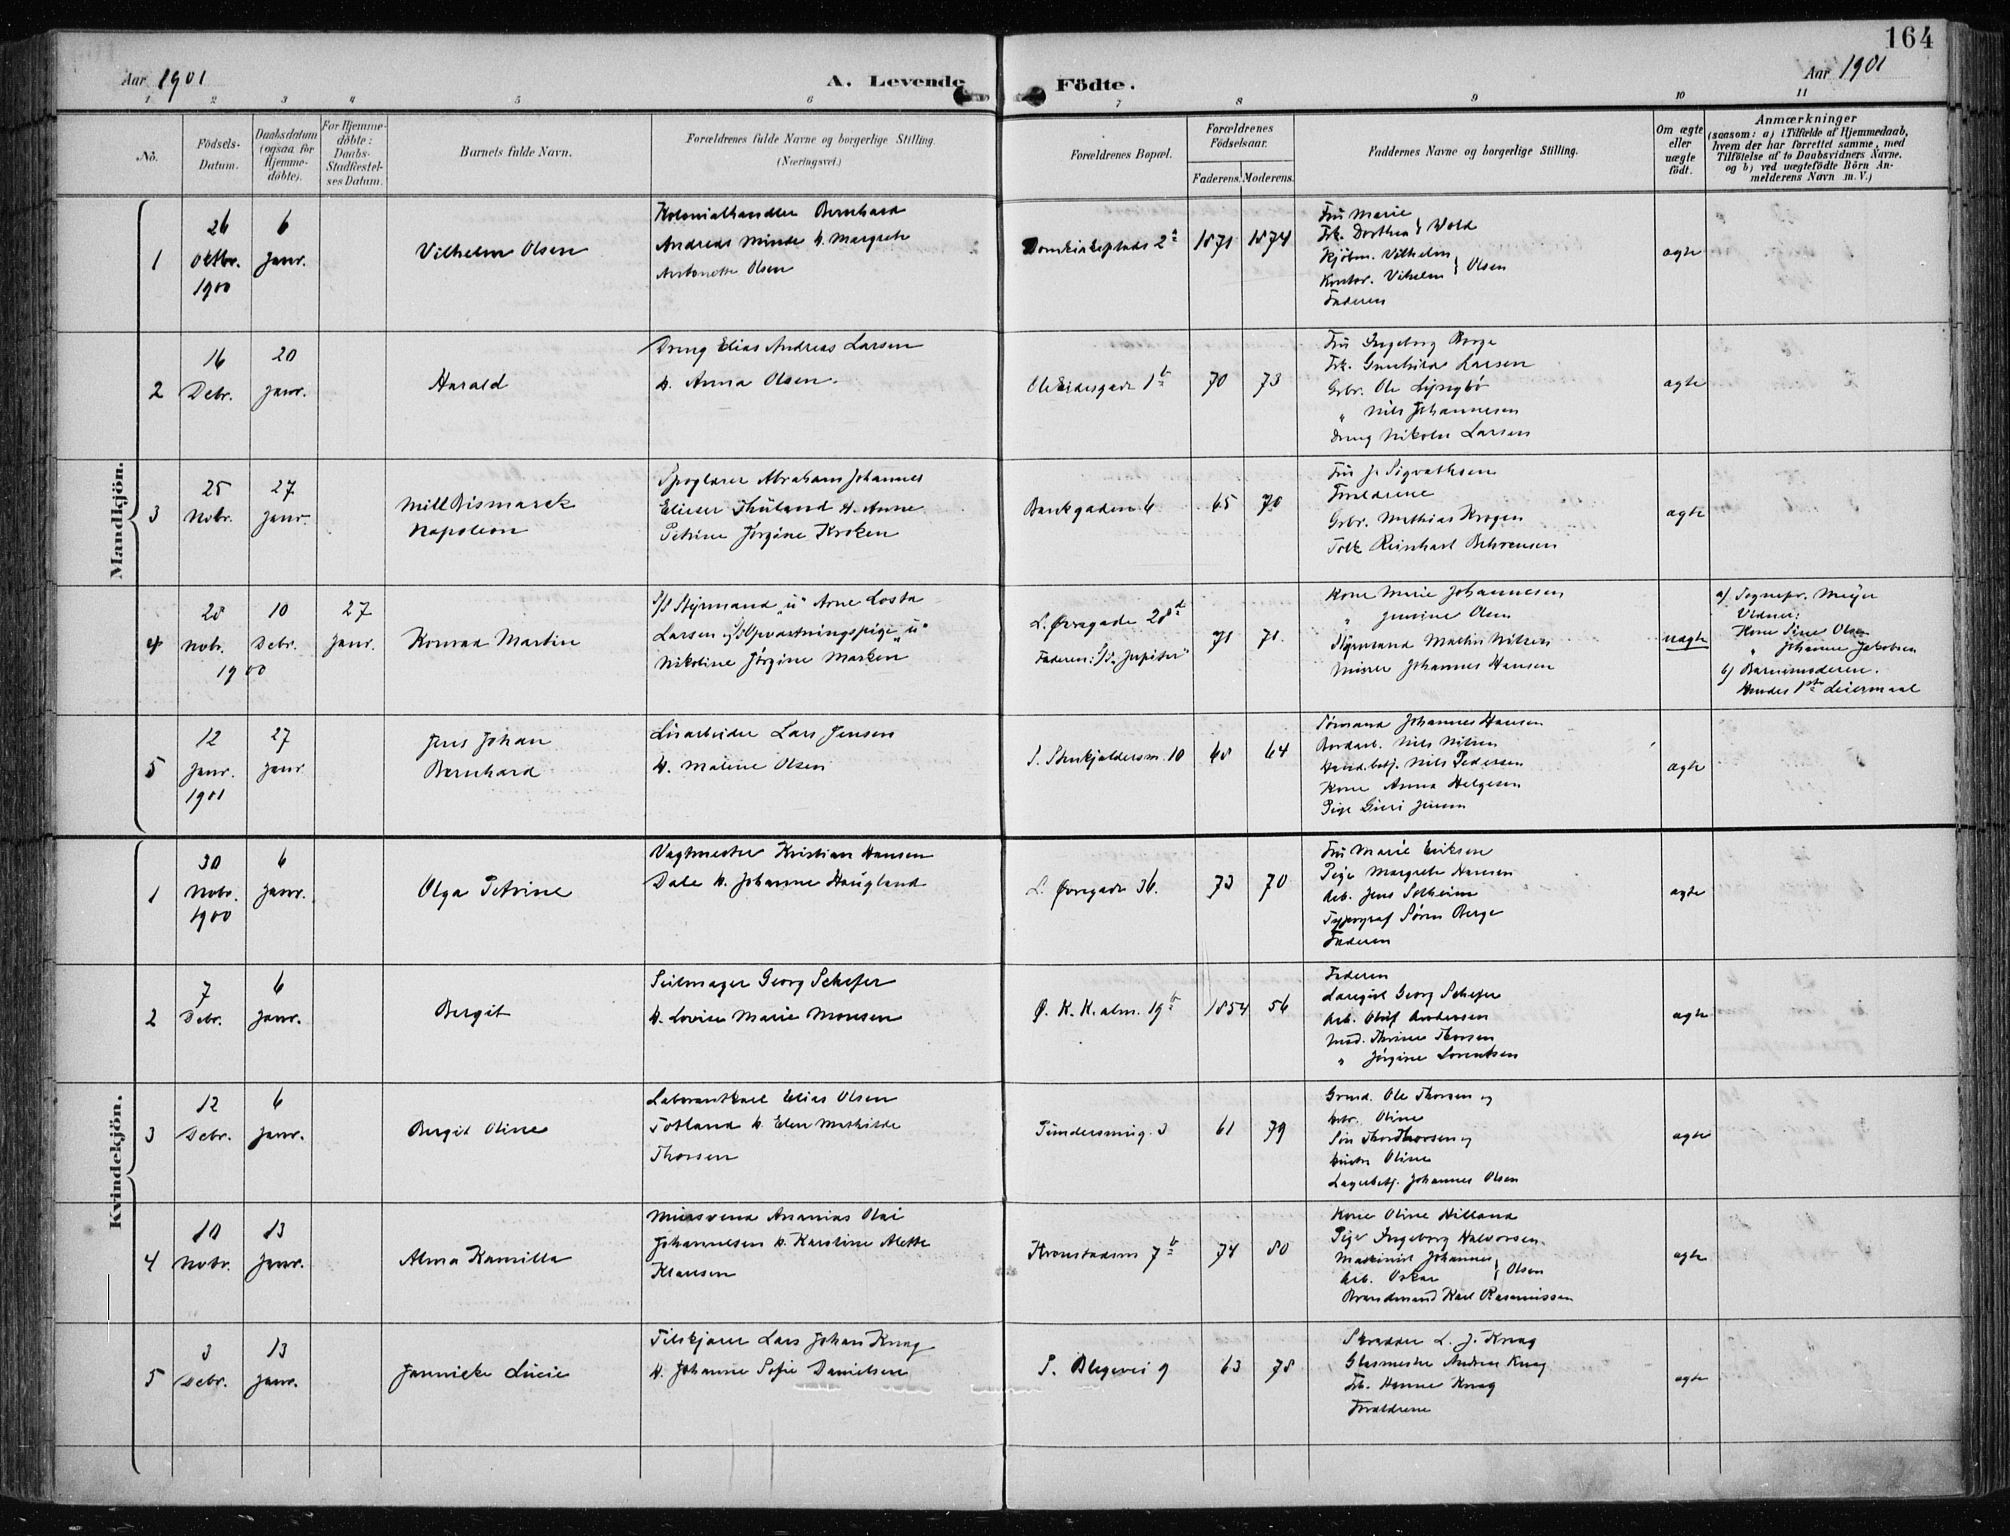 164
Aar 1901
A. Levende
Födte.
Aar 1901
1 2 3 4 5 6 7 8 9 10 11
No.
Födsels-
Datum.
Daabsdatum
(ogsaa for
Hjemme-
döbte).
For Hjemme-
döbte:
Daabs-
Stadfæstel-
ses Datum.
Barnets fulde Navn.
Forældrenes fulde Navne og borgerlige Stilling.
(Næringsvei.)
Forældrenes Bopæl.
Forældrenes
Födselsaar.
Faderens. Moderens.
Faddernes Navne og borgerlige Stilling.
Om ægte
eller
uægte
født.
Anmærkninger
(saasom: a) i Tilfælde af Hjemmedaab,
hvem der har forrettet samme, med
Tilföielse af to Daabsvidners Navne.
og b) ved uægtefödte Börn An-
melderens Navn m. V.)
Mandkjön.
1
26
Oktbr.
1900
6
Janr.
Vilhelm Olsen
Kolonialhandler Bernhard
Andreas Minde h. Margrete
Antonette Olsen
Domkirkeplads 2a
1871
1874
Fru Marie
Frk. Dorthea } Wold
Kjøbm. Vilhelm
Kontor. Vilhelm } Olsen
Faderen
ægte
2
16
Debr.
20
Janr.
Harald
Dreng Elias Andreas Larsen
h. Anna Olsen.
Ole Irgensgade 1b
70
73
Fru Ingeborg Borge
Frk. Gunhilda Larsen
Grbr. Ole Lyngbø
" Nils Johannesen
Dreng Nikolai Larsen
ægte
3
25
Nobr.
27
Janr.
Mill Bismarck
Napoleon
Spoglærer Abraham Johannes
Elieser Thuland H. Anne
Petrine Jørgine Kroken
Bankgaden 6
65
70
Fru J. Sigvathsen
Forældrene
Grbr. Mathias Krogen
Tolk Reinhart Behrensen
ægte
4
28
Nobr.
1900
10
Debr.
27
Janr.
Konrad Martin
S/S Styrmand "u" Arne Losta
Larsen og Opvartningspige "u"
Nikoline Jørgine Marken
L. Øvregade 28d
Faderen: S/S "Jupiter"
71
71.
Kone Marie Johannesen
" Jensine Olsen
Styrmand Martin Nilsen
Murer Johannes Hansen
uægte
a) Sognepr. Meyer
Vidner:
Kone Sine Olsen
" Johanne Jakobsen
b) Barnemoderen.
Hendes 1ste Leiermaal
5
12
Janr.
1901
27
Janr
Jens Johan
Bernhard
Løsarbeider Lars Jensen
h. Maline Olsen
S. Stenkjeldersm. 10
68
64
Sømand Johannes Hansen
Bordarb. Nils Nilsen
Hand.betj. Nils Pedersen
Kone Anna Helgesen
Pige Guri Jensen
ægte
Kvindekjön.
1
30
Nobr.
1900
6
Janr.
Olga Petrine
Vagtmester Kristian Hansen
Dale h. Johanne Haugland
L. Øvregade 36.
73
70
Fru Marie Eriksen
Pige Margrete Hansen
Arb. Jens Solheim
Typograf Søren Berge
Faderen
ægte
2
7
Debr.
6
Janr.
Bergit
Seilmager Georg Schefer
h. Lovise Marie Monsen
Ø. K. K. alm. 19b
1854
56
Faderen
Lærergut Georg Schefer
Arb. Oluf Andersen
Mad. Thrine Thorsen
" Jørgine Lorentsen
ægte
3
12
Debr.
6
Janr.
Bergit Oline
Laborantkarl Elias Olsen
Totland h. Elen Mathilde
Thorsen
Tündersmug. 3
61
79
Grmd. Ole Thorsen og
Hstr. Oline
Søn Thor Thorsen og
Hustr Oline
Lagerbetj. Johannes Olsen
ægte
4
10
Nobr.
13
Janr.
Alma Kamilla
Mursvend Ananias Olai
Johannesen h. Karoline Alette
Klausen
Kronstadsm 7b
74
80
Kone Oline Hilland
Pige Ingeborg Halvorsen
Maskinist Johannes
Arb. Oskar } Olsen
Brandmand Karl Rasmussen
ægte
5
3
Debr.
13
Janr.
Jannicke Lucie
Tilskjærer Lars Johan Krag
h. Johanne Sofie Danielsen
S. Blegevei 9
63
78
Skrædder L. J. Krag
Glasmester Andreas Krag
Frk. Hanne Krag
Forældrene
ægte